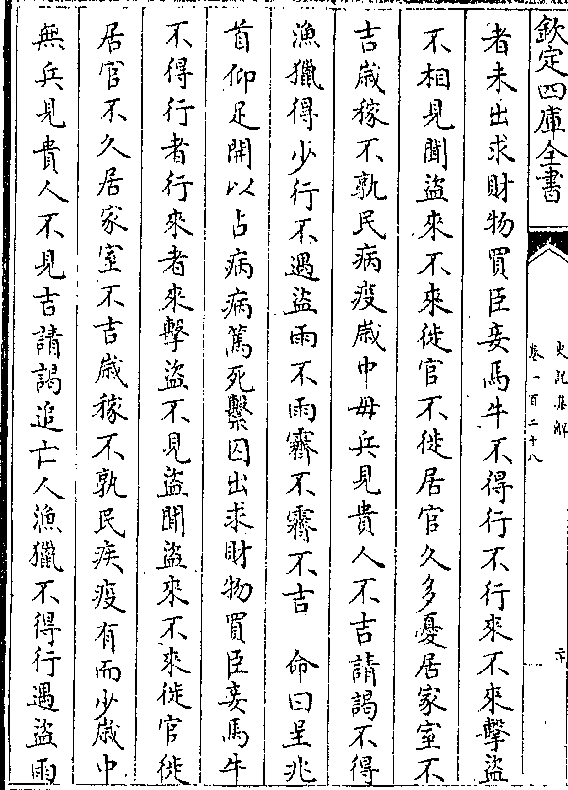 欽定四庫全書
史記集解
卷一百二十八
二十
者未出求財物買臣妾馬牛不得行不行來不來擊盜
不相見聞盜來不來徙官不徙居官久多憂居家室不
吉歲稼不孰民病疫歲中毋兵見貴人不吉請謁不得
漁獵得少行不遇盜雨不雨霽不霽不吉　命曰呈兆
首仰足開以占病病篤死繫囚出求財物買臣妾馬牛
不得行者行來者來擊盜不見盜聞盜來不來徙官徙
居官不久居家室不吉歲稼不孰民疾疫有而少歲中
無兵見貴人不見吉請謁追亡人漁獵不得行遇盜雨